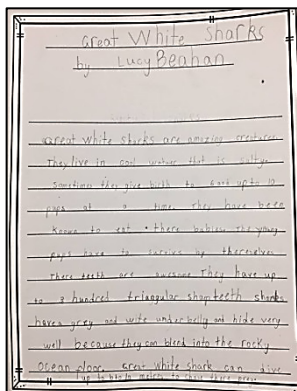 Great White Sharks
by Lucy Beahan
Great white sharks are amazing creatures
They live in cool that is salty.
Sometimes they give birth to up to 10
pups at a time. They have been
known to eat there babies The young
pups have to survive by themselves
There teeth are awesome They have up
to 3 hundred triangular sharp teeth sharks
have grey and wite under belly and hide very
well because they can blend into the rocky
ocean floor. great white shark can dive
up to to there prey